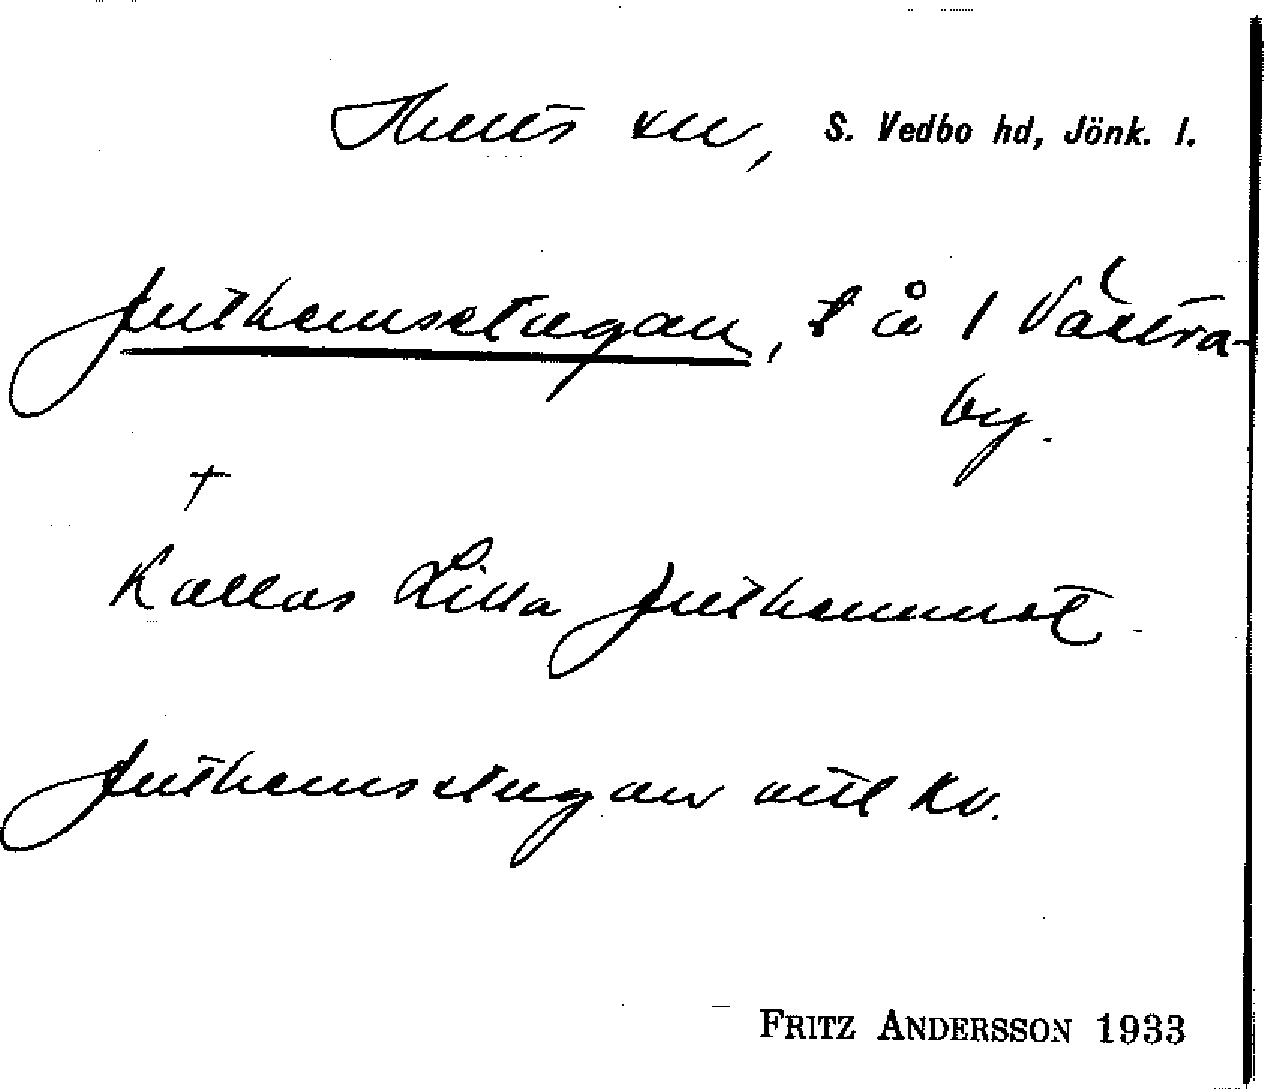 Hults sn, S. Vedbo hd, Jönk. l.
Juthemsstugan, t å 1 Västra-
by.
†
Kallas Lilla Juthemmet
Juthemsstugan kv.
FRITZ ANDERSSON 1933